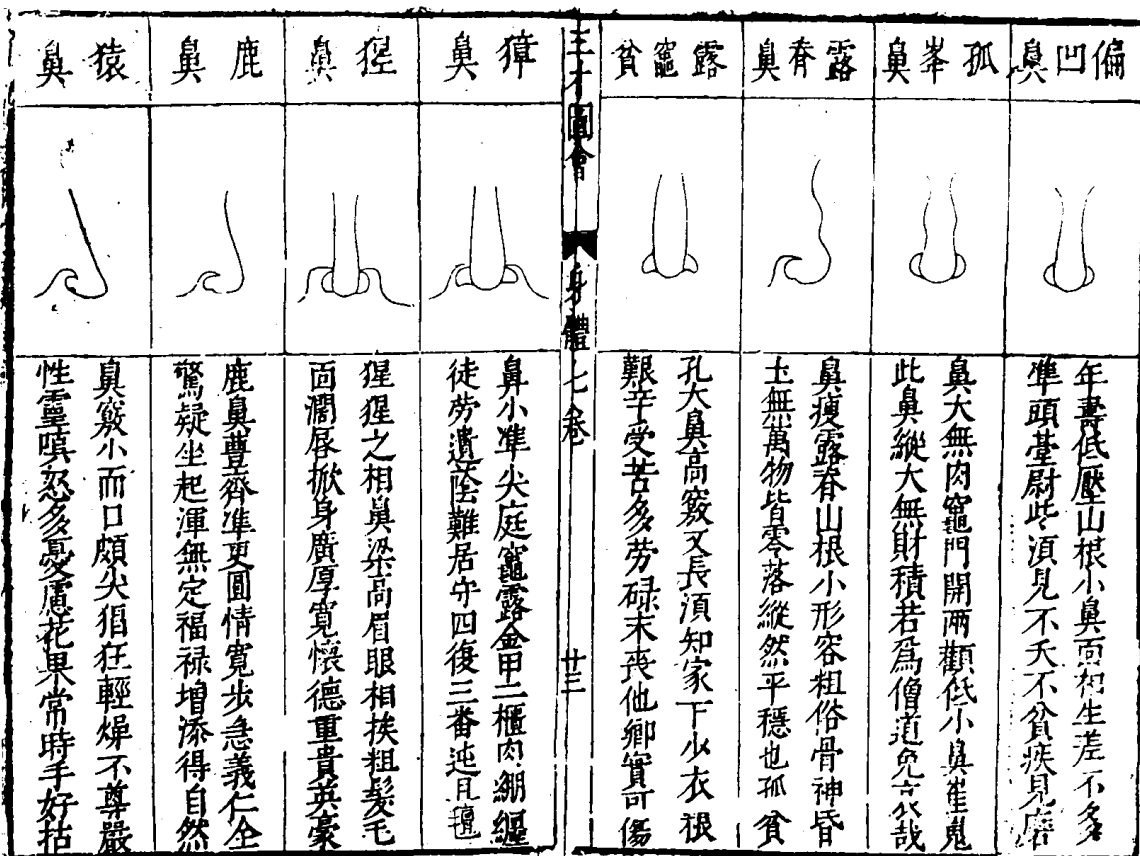 偏凹鼻
年壽低壓山根小鼻面相生差不多
準頭臺尉些須見不夭不貧疾見磨
孤峯鼻
鼻大無肉竈門開兩顴低小鼻崔嵬
此鼻縱大無財積若爲僧道免哀哉
露脊鼻
鼻瘦露脊山根小形容粗俗骨神昏
土無萬物皆零落縱然平穩也孤貧
露竈貧
孔大鼻高竅又長須知家下少衣粮
艱辛受苦多勞碌末喪他鄉實可傷
三才圖會
身體七卷
廿三
獐鼻
鼻小準尖庭竈露金甲二櫃肉綳纏
徒勞遺蔭難居守四復三番迍且邅
猩鼻
猩猩之相鼻梁高眉眼相挨粗髮毛
面濶唇掀身廣厚寛懷德重貴英豪
鹿鼻
鹿鼻豐齊準更圓情寛步急義仁全
驚疑坐起渾無定福禄增添得自然
猿鼻
鼻竅小而口頗尖猖狂輕燥不尊嚴
性靈嗔怒多憂慮花果常時手好拈